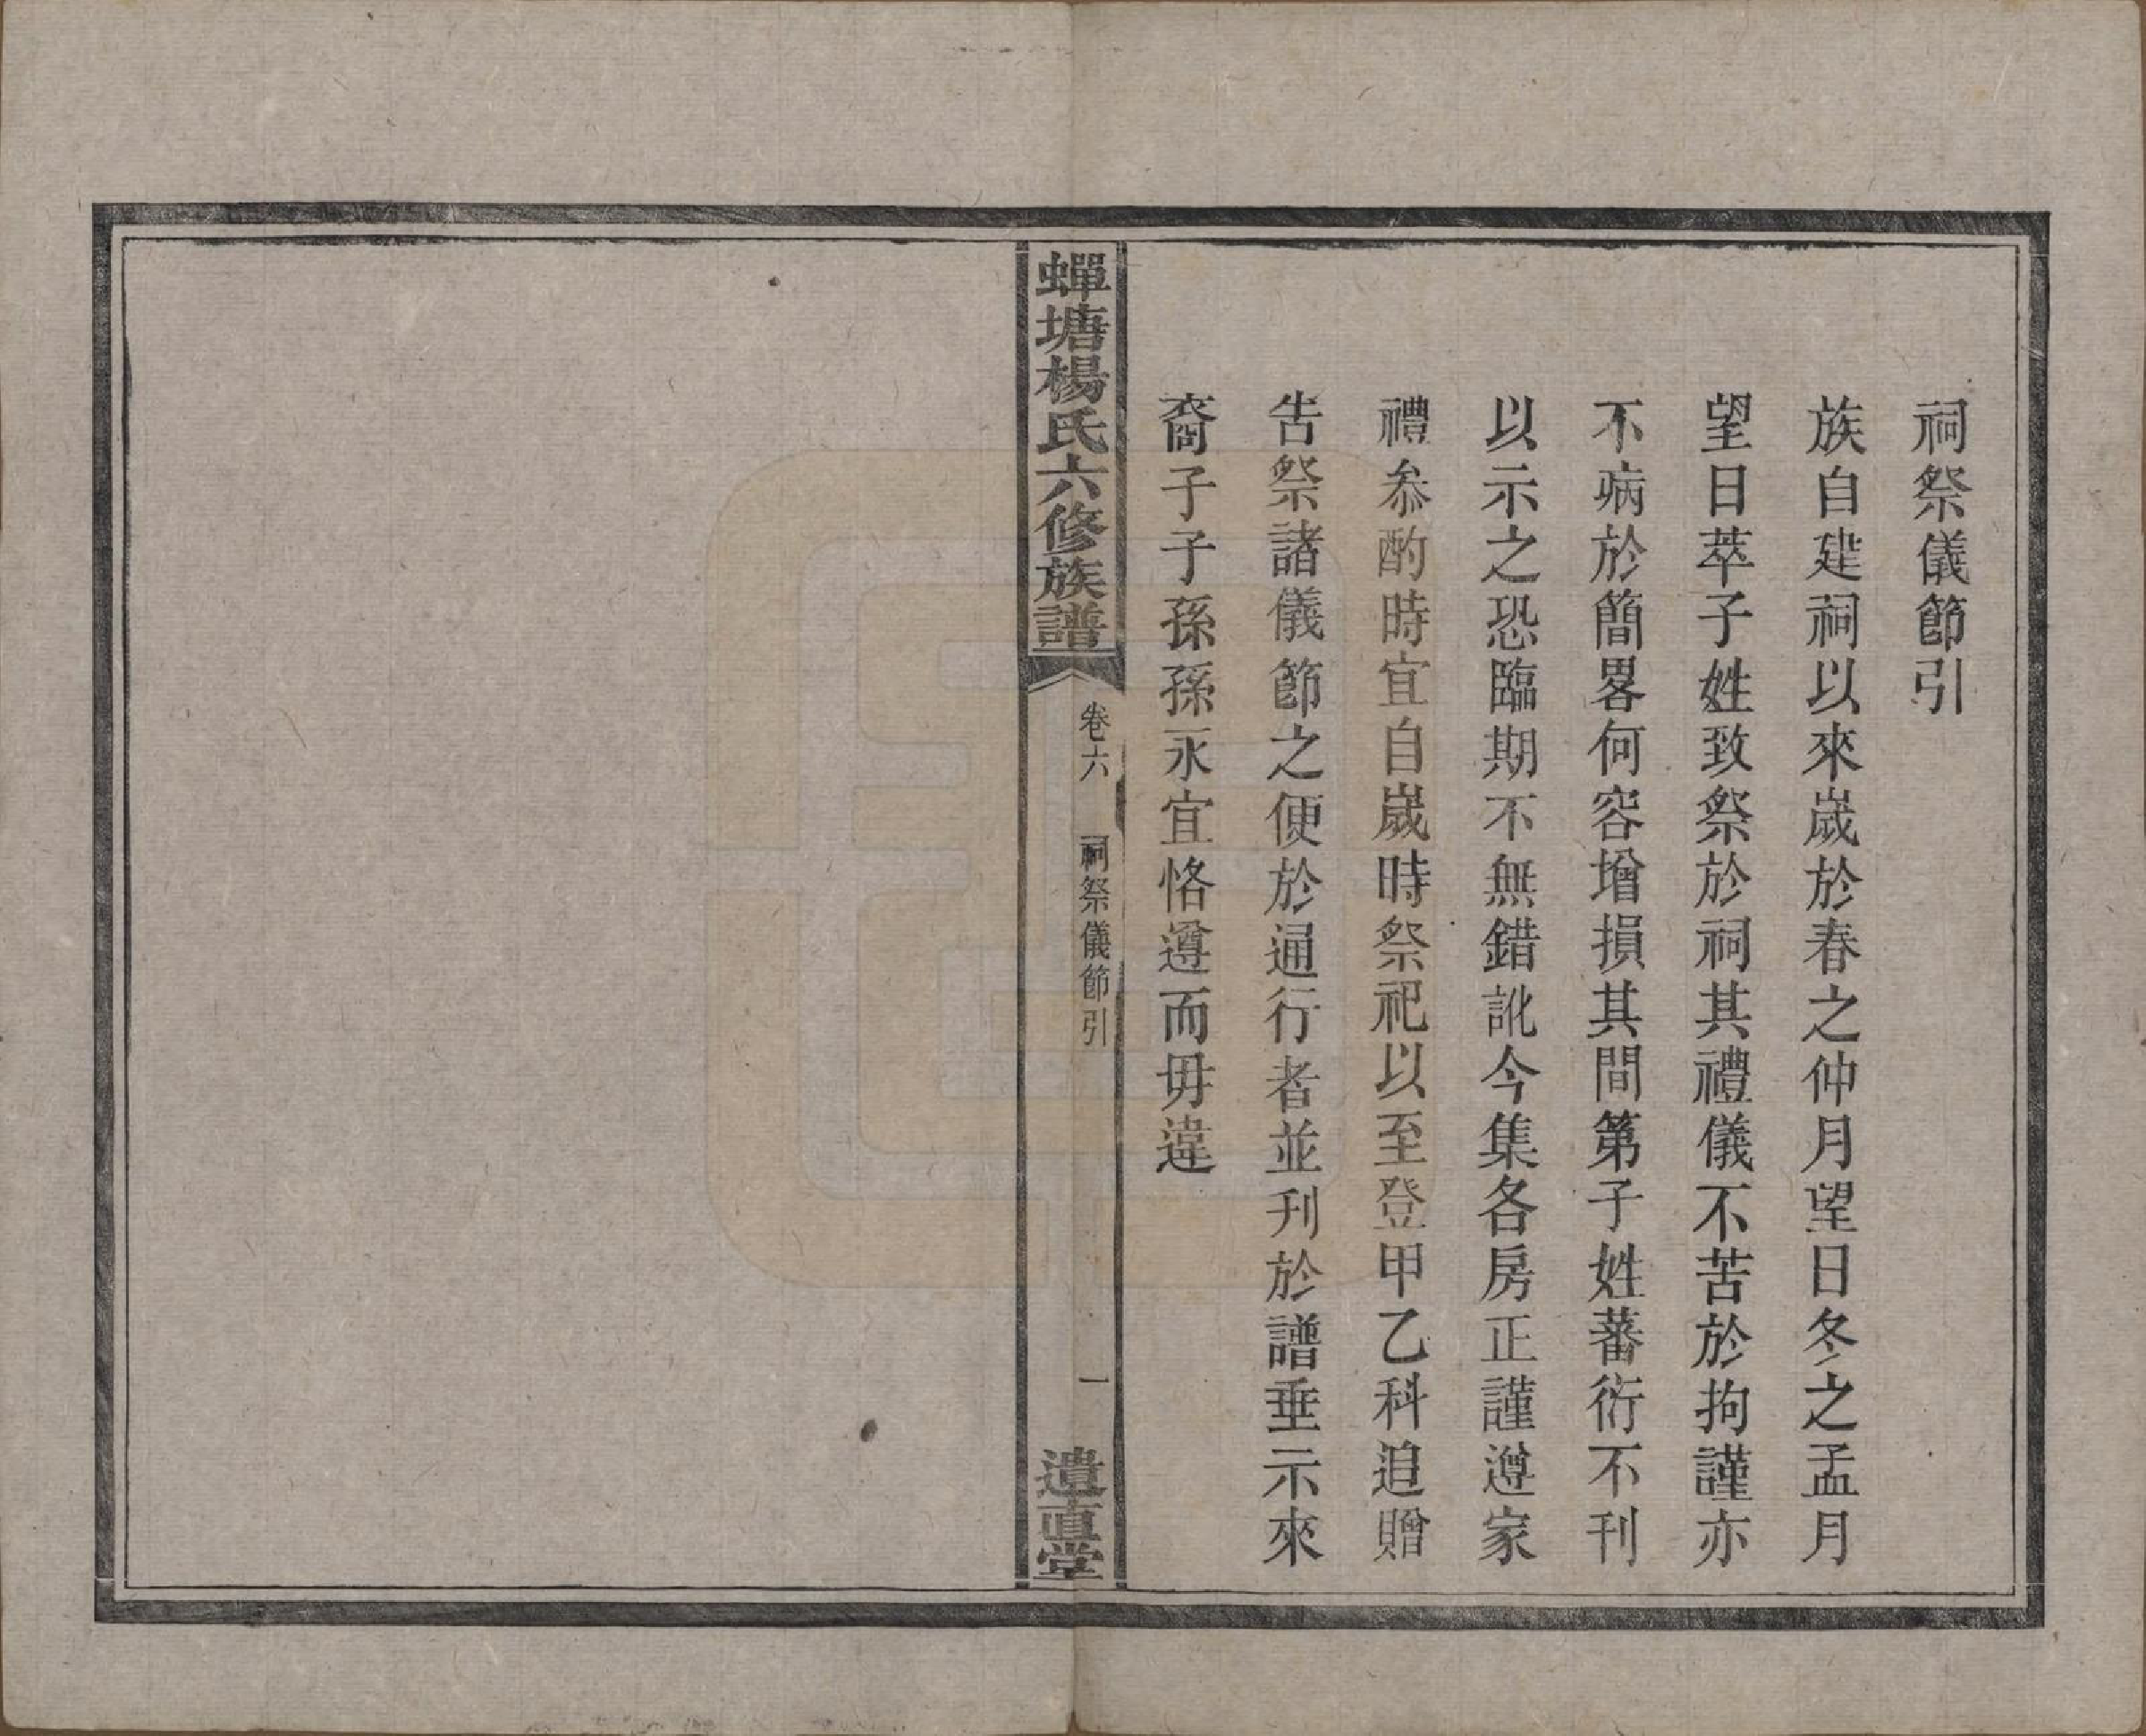 祠祭儀節引
族自建祠以來歲於春之仲月望日冬之孟月
望日萃子姓致祭於祠其禮儀不苦於拘謹亦
不病於簡畧何容增損其間第子姓蕃衍不刊
以示之恐臨期不無錯訛今集各房正謹遵家
禮叅酌時宜自嵗時祭祀以至登甲乙科追贈
告祭諸儀節之便於通行者並刊於譜垂示來
裔子子孫孫永宜恪遵而毋違
蟬塘楊氏六修族譜
卷六
祠祭儀節引
一
遺直堂